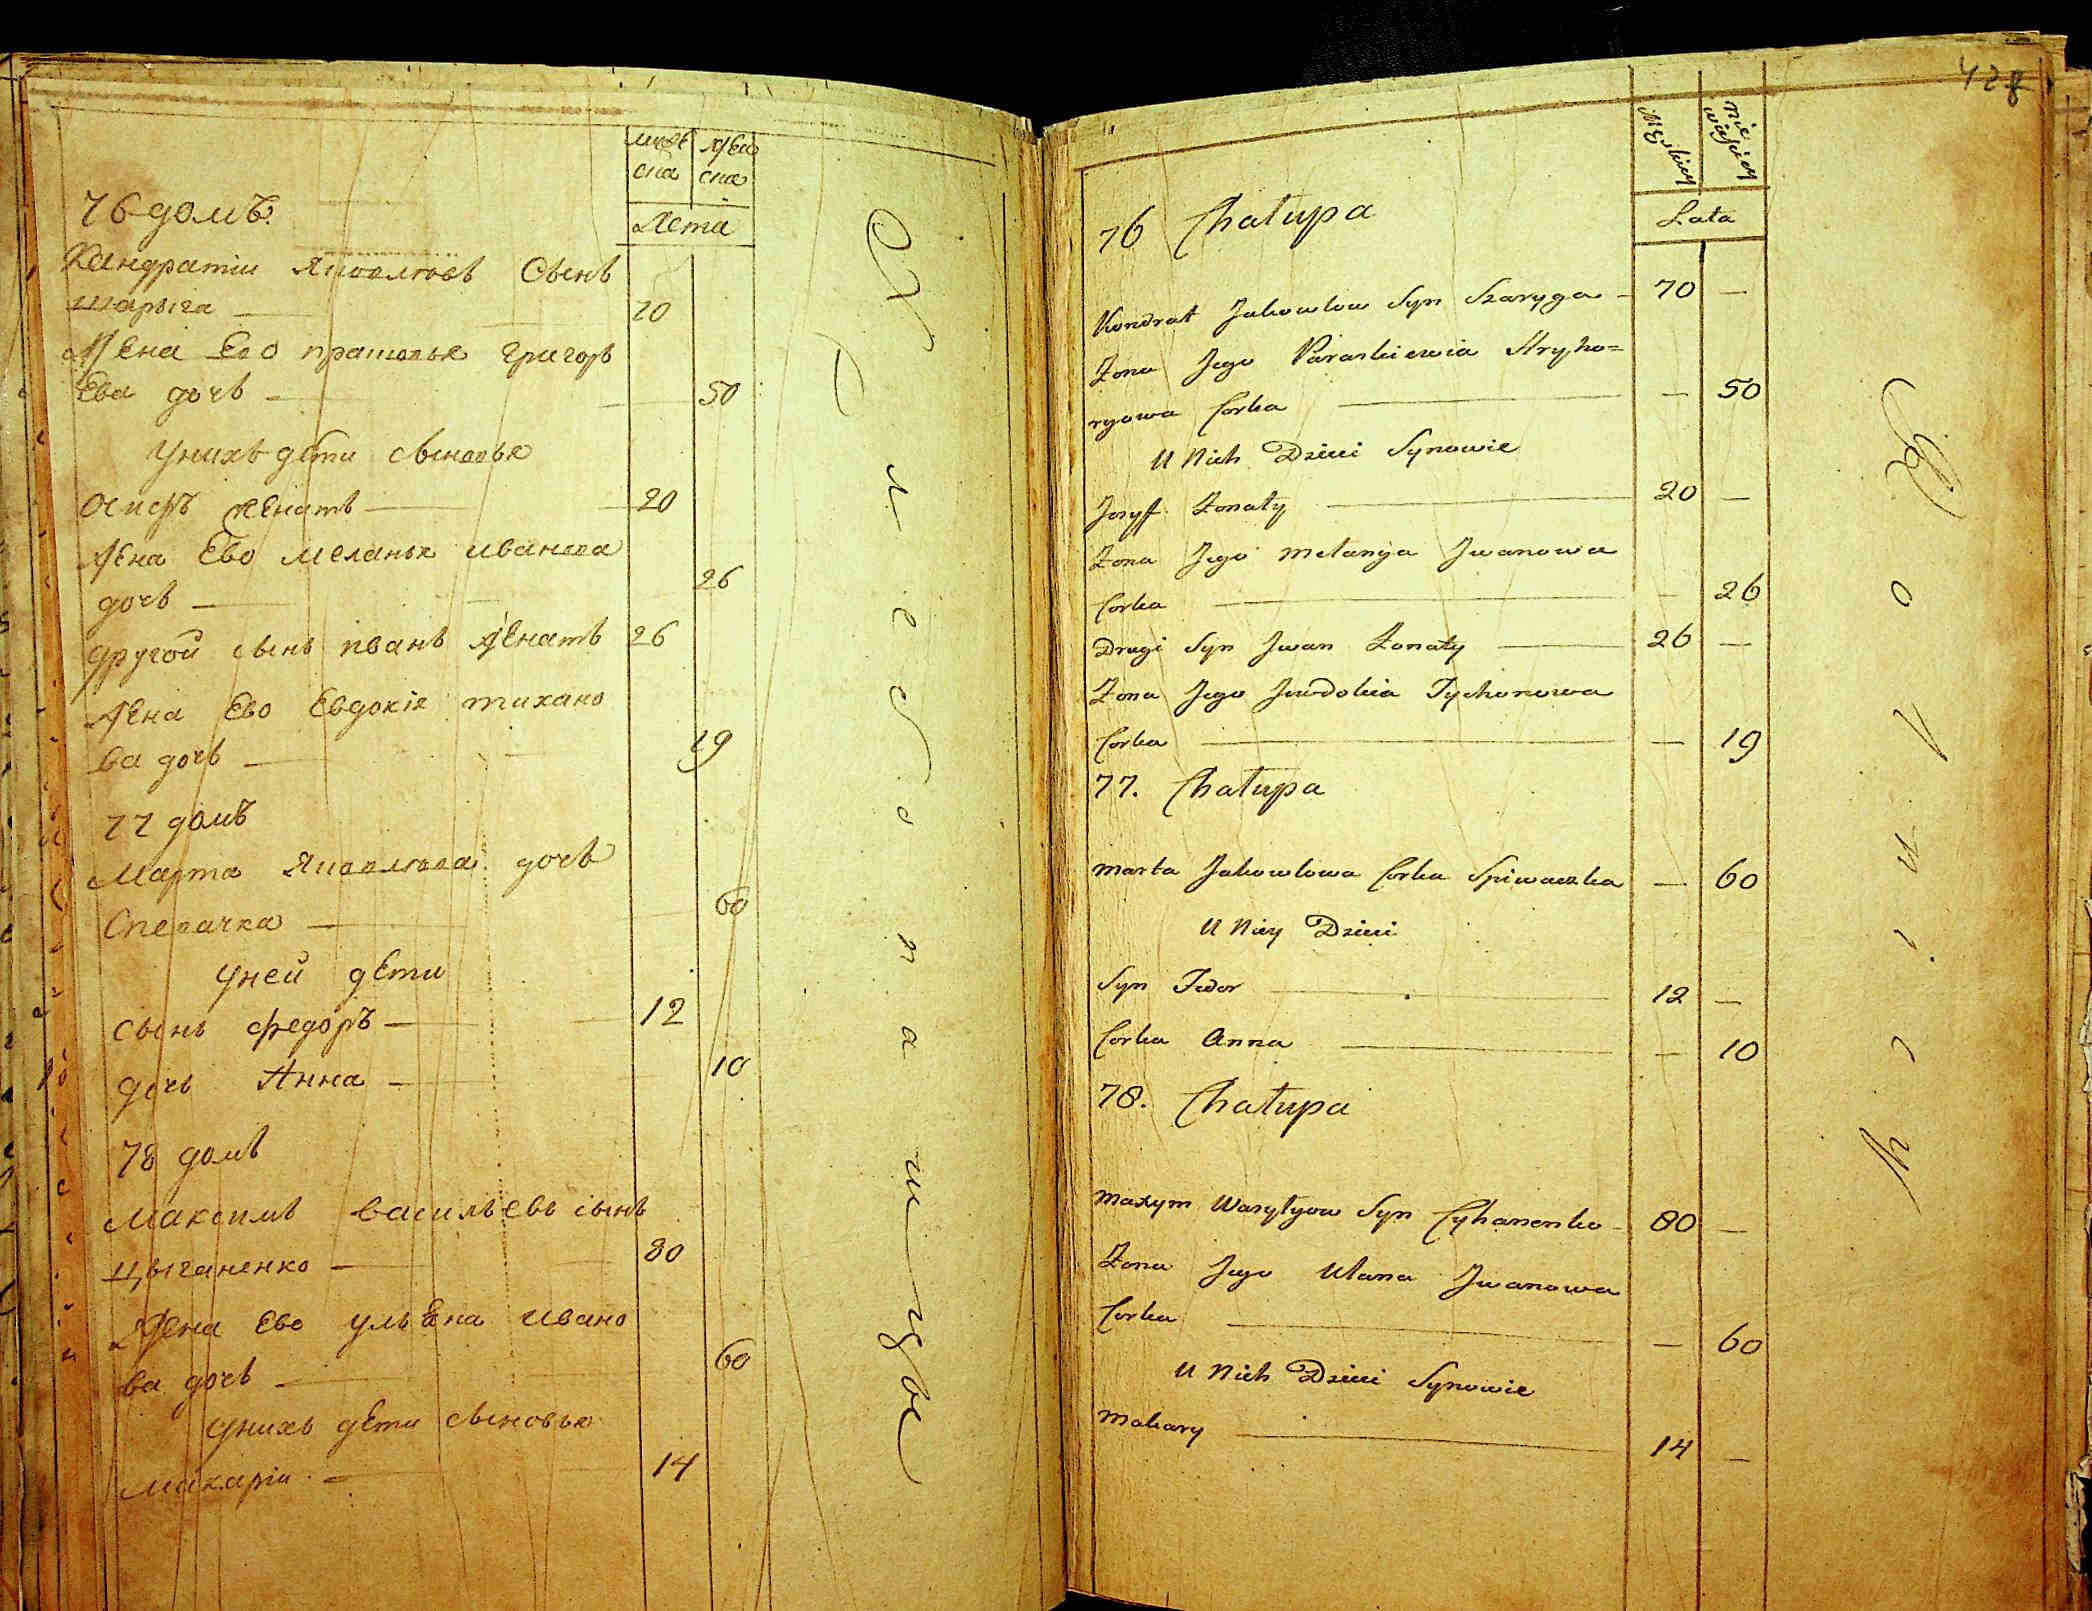 муже жен
ска ска
Лета
76 домъ.
Кандратіи Яковлювъ Сынъ
шарыга — 70
Жена Ево прасковья григоръ
Ева дочь — 50
Унихъ дети сыновья
Осипъ женатъ — 20
Жена Ево меланья иванова
дочь — 26
другой сынъ иванъ женатъ 26
Жена Ево Евдокія тихано
ва дочь — 19
77 домъ
Марта Яковлюва дочь
Спевачка — 60
Уней дети
Сынъ федоръ — 12
дочь Анна — 10
78 домъ
Максимъ васильевъ сынъ
цыганенко — 80
Жена Ево ульяна ивано
ва дочь — 60
Унихъ дети сыновья
макаріи — 14
428
Męskiey
Lata
76 Chałupa
Kondrat Jakowlow Syn Szaryga — 70 —
Żona Jego Paraskiewia Hryho=
ryowa Corka — — 50
U Nich Dzieci Synowie
Jozyf Żonaty — 20 —
Żona Jego Melanija Jwanowa
Corka — — 26
Drugi Syn Jwan Żonaty — 26 —
Żona Jego Jewdokia Tychonowa
Corka — — 19
77. Chałupa
Marta Jakowlowa Corka Spiwaczka — 60
U Niey Dzieci
Syn Fedor — 12 —
Corka Anna — — 10
78. Chałupa
Maxym Wasylyow Syn Cyhanenko — 80 —
Żona Jego Ulana Jwanowa
Corka — — 60
U Nich Dzieci Synowie
Makary — 14 —
R o l n i c y